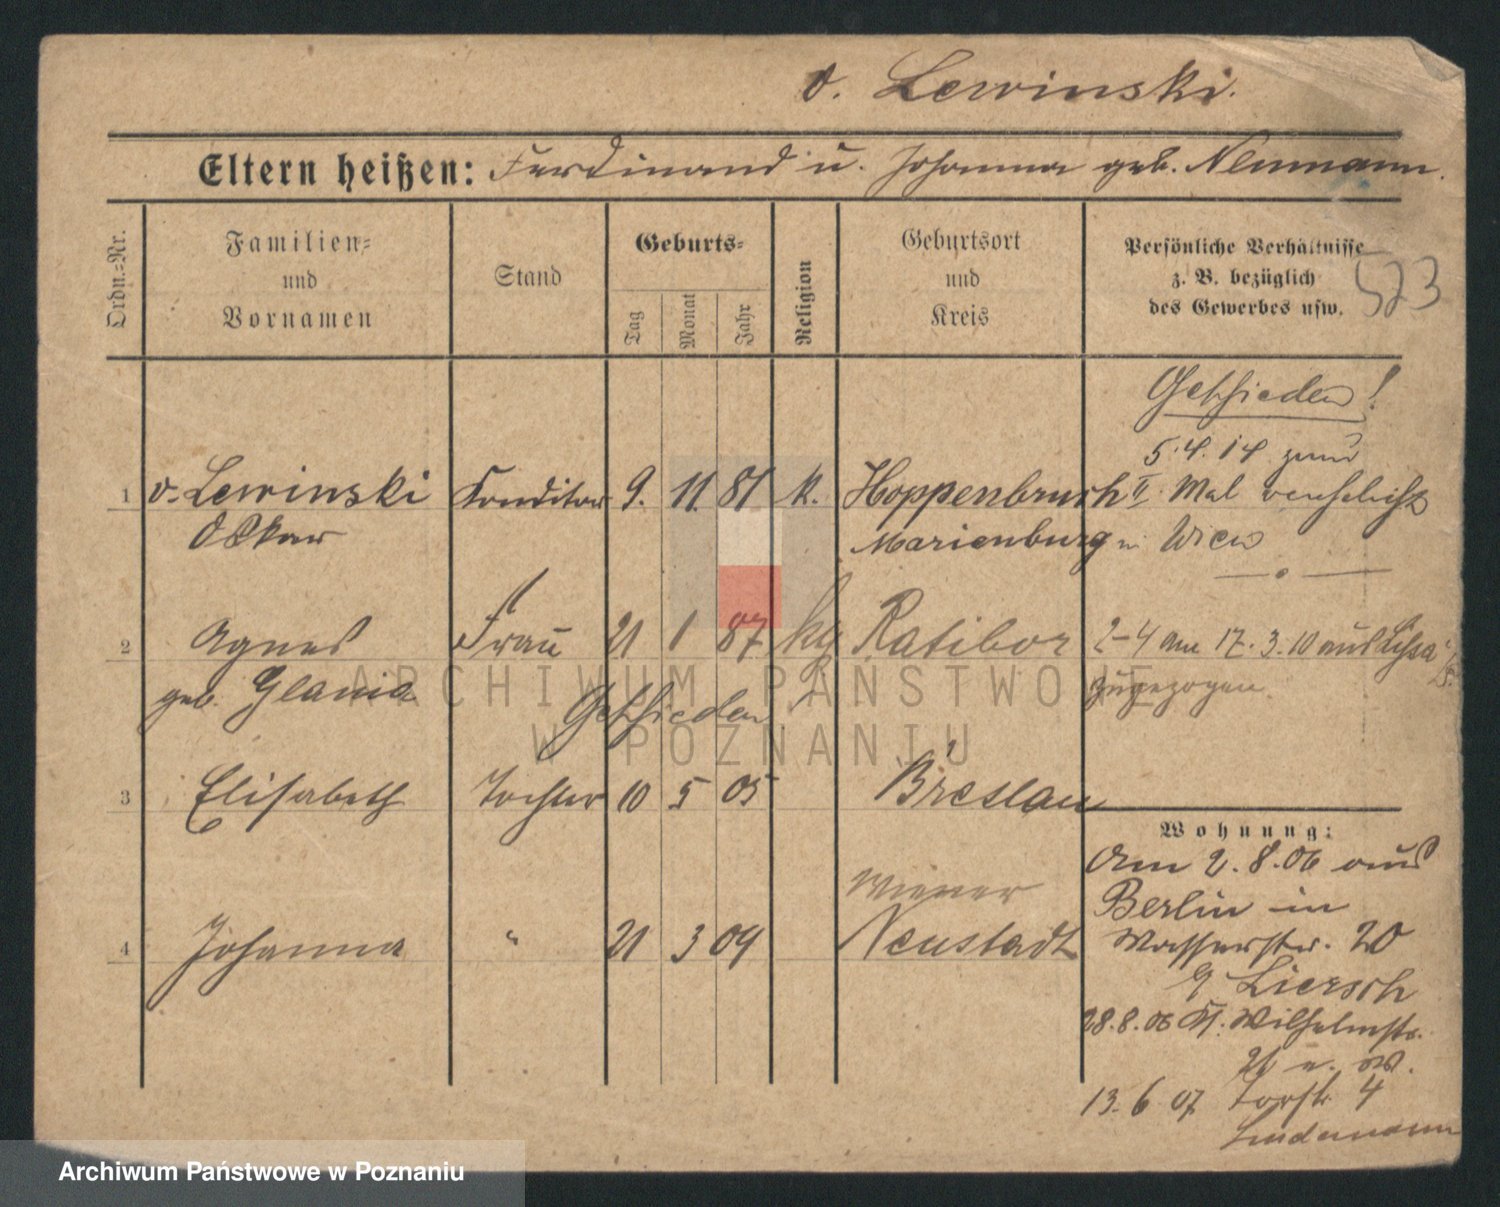 v. Lewinski.
Eltern heißen: Ferdinand u. Johanna geb. Neumann.
Ordn.-Nr.
Familien-
und
Vornamen
Stand
Geburts-
Tag
Monat
Jahr
Religion
Geburtsort
und
Kreis
Persönliche Verhältnisse
z. B. bezüglich
des Gewerbes usw.
523
Geschieden!
5.4.14 zum
1 v. Lewinski Konditor 9. 11. 81 k. Hoppenbruch II. Mal verehelicht
Oskar Marienburg in Wien
2 Agnes Frau 21 1 87 Ratibor 2-4 am 17.3.10 aus Lissa
geb. Glania Geschieden zugezogen.
3 Elisabeth Tochter 10 5 05 Breslau
Wohnung:
Am 2.8.06 aus
Wiener
Berlin in
4 Johanna " 21 3 09 Neustadt Wasserstr. 20
Liersch
28.8.06 Kl. Wilhelmstr.
13.6.07 Torstr. 4
Lindemann
ARCHIWUM PAŃSTWOWE
W POZNANIU
Archiwum Państwowe w Poznaniu